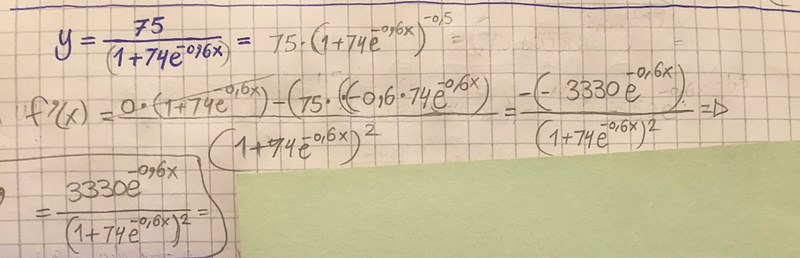 y = 75/(1+74e^{-0,6x}) = 75·(1+74e^{-0,6x})^{-0,5} =
f'(x) = (0·(1+74e^{-0,6x})-(75·(·(-0,6·74e^{-0,6x}))/(1+74e^{-0,6x})^2 = (-(-3330e^{-0,6x}))/(1+74e^{-0,6x})^2 =>
= 3330e^{-0,6x}/(1+74e^{-0,6x})^2 =